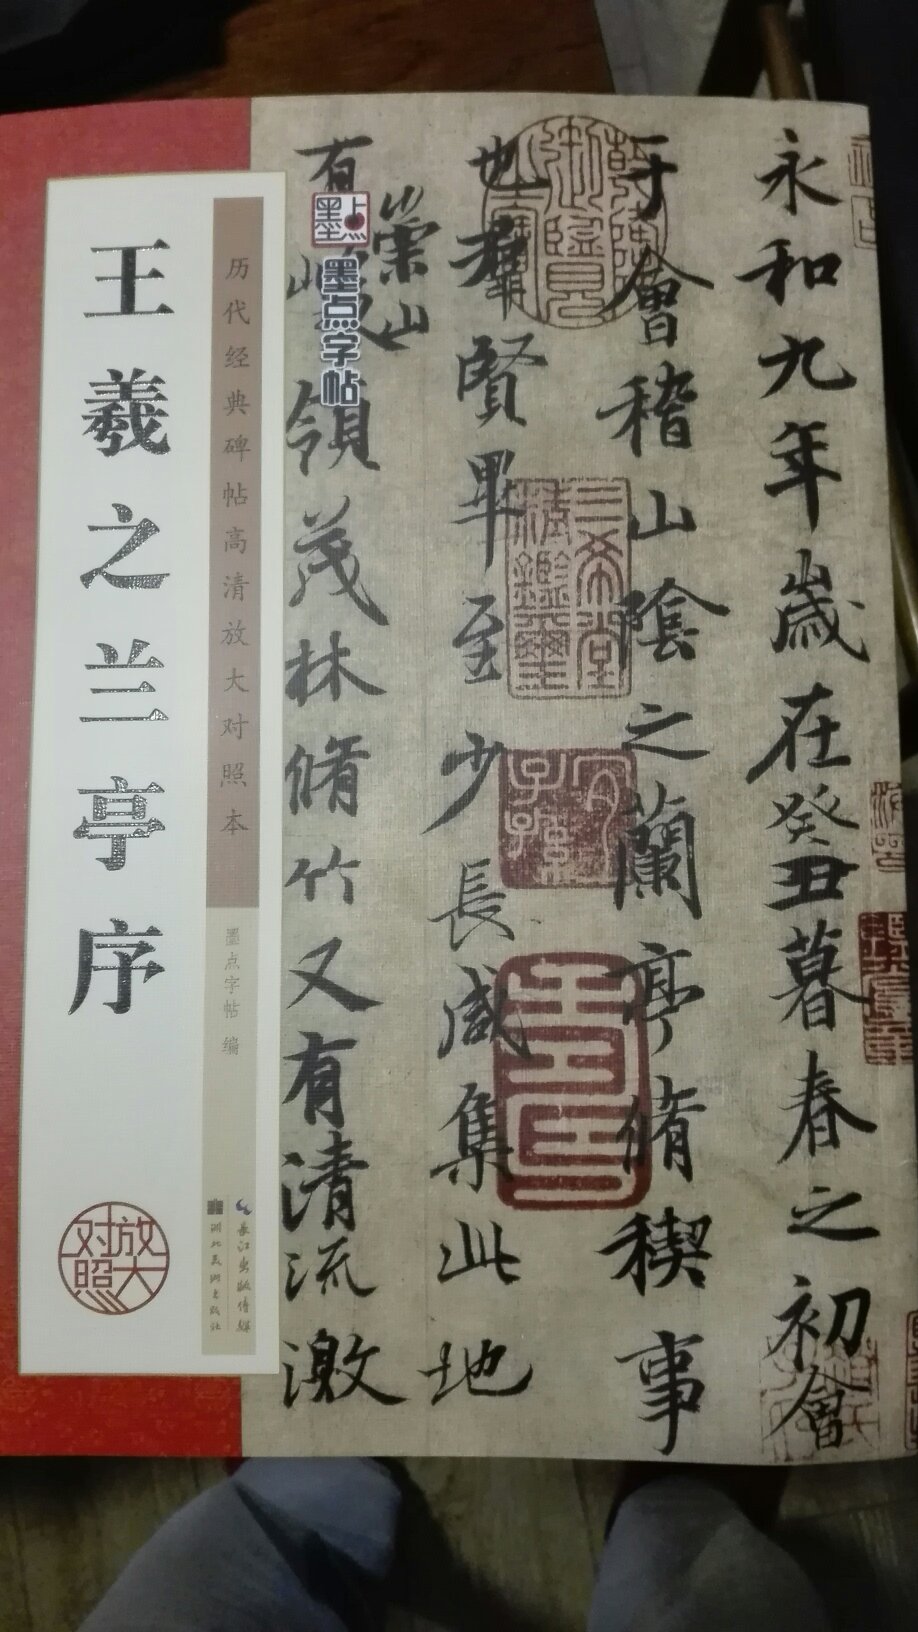 永和九年歲在癸丑暮春之初會
于會稽山陰之蘭亭脩稧事
也羣賢畢至少長咸集此地
有
崇山
領茂林脩竹又有清流激
墨点
墨点字帖
历代经典碑帖高清放大对照本
墨点字帖 编
王羲之兰亭序
放大
对照
长江出版传媒
湖北美术出版社
三希堂
精鑑璽